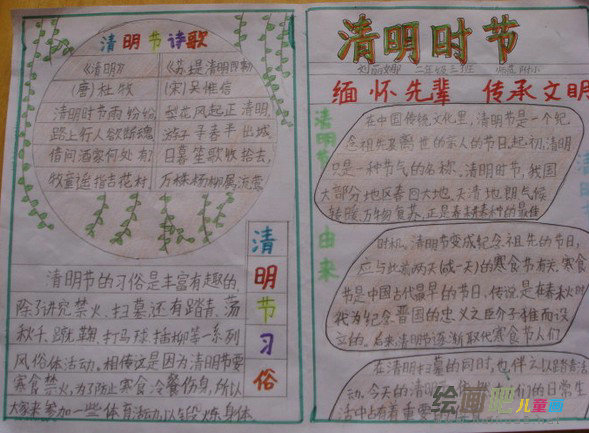 清明节诗歌
《清明》
(唐)杜牧
清明时节雨纷纷
路上行人欲断魂
借问酒家何处有
牧童遥指杏花村
《苏堤清明即事》
(宋)吴惟信
梨花风起正清明,
游子寻春半出城
日暮笙歌收拾去,
万株杨柳属流莺
清明节习俗
清明节的习俗是丰富有趣的,
除了讲究禁火、扫墓,还有踏青、荡
秋千、蹴鞠、打马球、插柳等一系列
风俗体活动。相传这是因为清明节要
寒食禁火,为了防止寒食冷餐伤身,所以
大家来参加一些体育活动,以锻炼身体。
清明时节
二年级三班
缅怀先辈 传承文明
清明节
由来
在中国传统文化里,清明节是一个纪
念祖先离世的亲人的节日。起初,清明
只是一种节气的名称。清明时节,我国
大部分地区春回大地,天清地朗,气候
转暖,万物复苏,正是春耕春种的最佳
时机。清明节变成纪念祖先的节日,
应与此前两天(或一天)的寒食节有关。寒食
节是中国古代最早的节日,传说是在春秋时
我为纪念晋国的忠义之臣介子推而设
立的。后来清明节逐渐取代寒食节人们
在清明扫墓的同时,也伴之以踏青活
动。今天的清明
们的日常生
活中占有着重要的
绘画吧儿童画